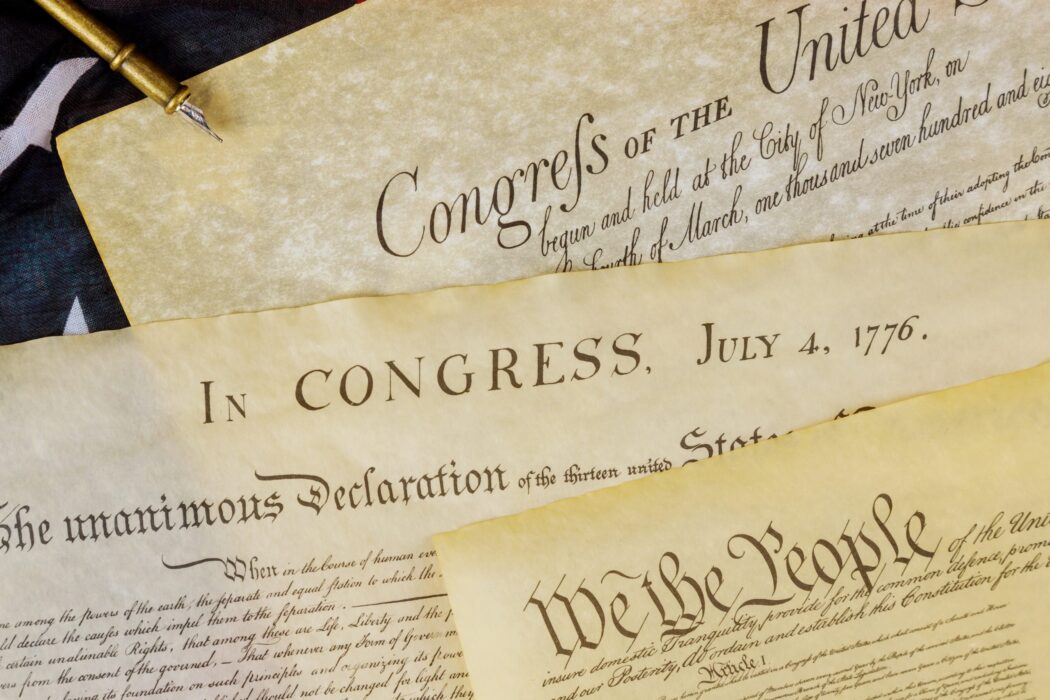 Congreſs OF THE United
begun and held at the City of New-York, on
Fourth of March, one thousand seven hundred and
at the time of their adopting the
confidence in the
IN CONGRESS, JULY 4, 1776.
The unanimous Declaration of the thirteen united States
When in the Course of human
among the powers of the earth, the ſeparate and equal ſtation to which the
declare the cauſes which impel them to the ſeparation.
certain unalienable Rights, that among theſe are Life, Liberty and the
from the consent of the governed, — That whenever any Form of
its foundation on such principles and organizing its
should not be changed for light and
which they
We the People of the
insure domestic Tranquility, provide for the common defence,
and our Posterity, do ordain and establish this Constitution for the
Article I